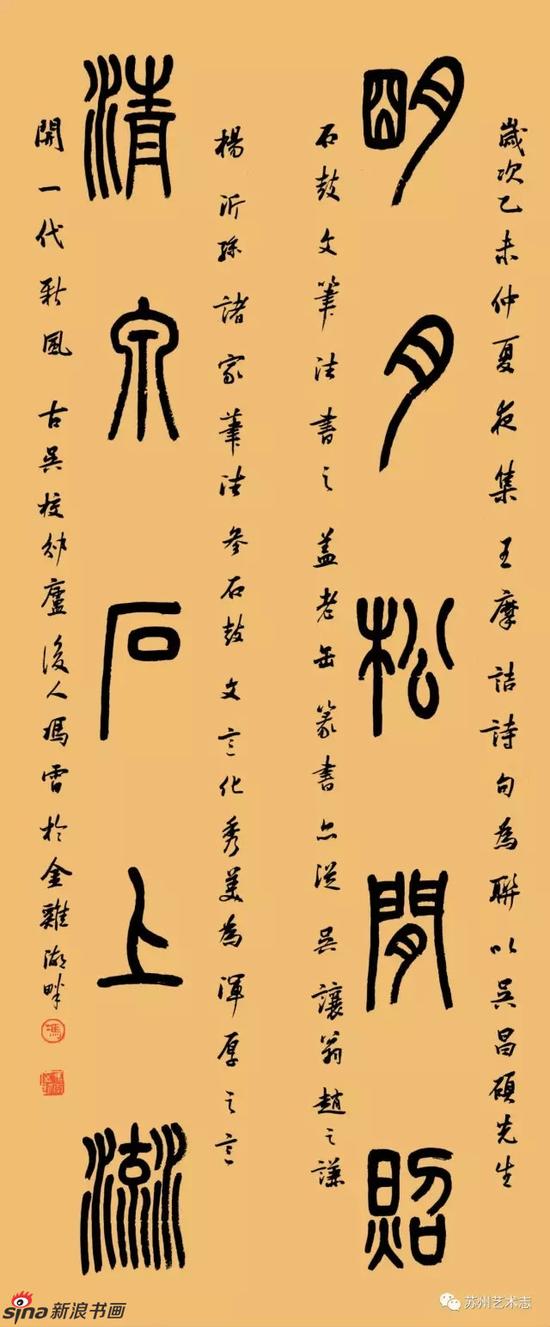 明月松間照
清泉石上流
歲次乙未仲夏夜集王摩詰詩句為聯以吳昌碩先生
石鼓文筆法書之蓋老缶篆書亦從吳讓翁趙之謙
楊沂孫諸家筆法參石鼓文意化秀美為渾厚之意
開一代新風 古吳校邠廬後人馮雷於金雞湖畔
sina新浪书画
苏州艺术志